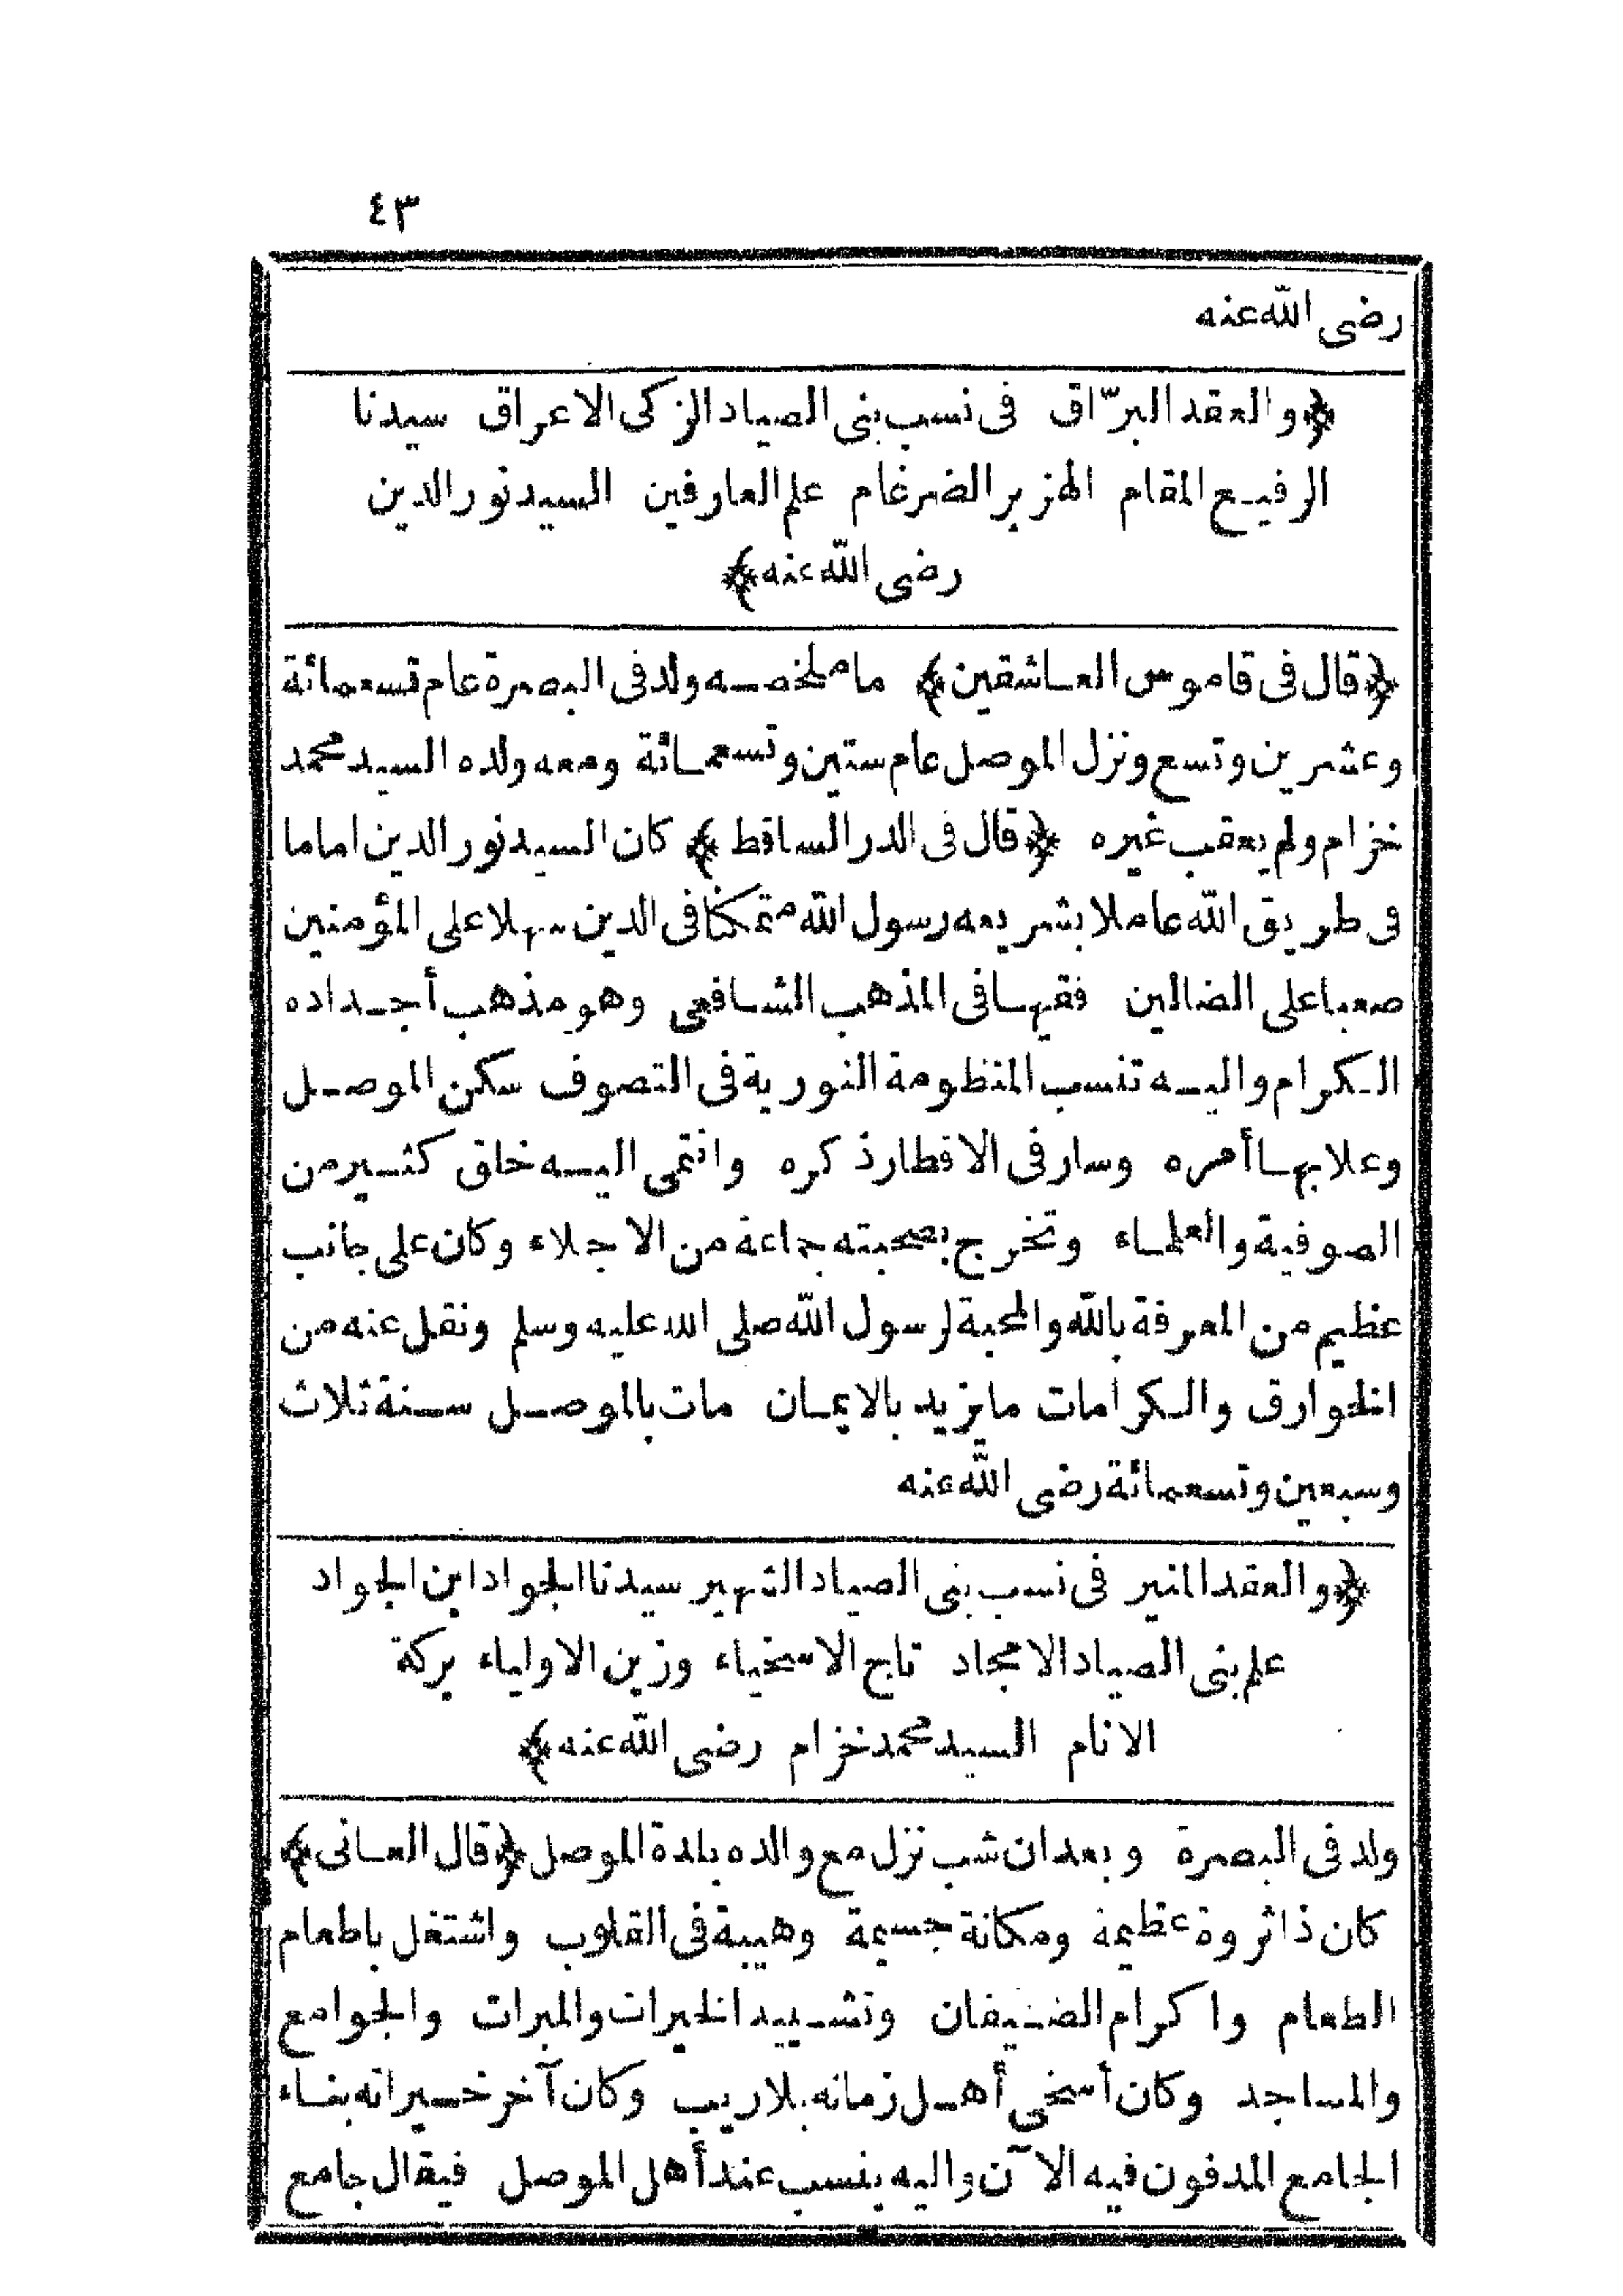 ٤٣
رضى الله عنه
﴿والعقد البرّاق فى نسب بنى الصياد الزكى الاعراق سيدنا
الرفيع المقام الهزبر الضرغام علم العارفين السيد نور الدين
رضى الله عنه﴾
﴿قال فى قاموس العاشقين﴾ ما ملخصه ولد فى البصرة عام تسعمائة
وعشرين وتسع ونزل الموصل عام ستين وتسعمائة ومعه ولده السيد محمد
خزام ولم يعقب غيره ﴿قال فى الدر الساقط﴾ كان السيد نور الدين اماما
فى طريق الله عاملا بشريعه رسول الله متمكنا فى الدين سهلا على المؤمنين
صعبا على الضالين فقيها فى المذهب الشافعى وهو مذهب أجداده
الكرام واليه تنسب المنظومة النورية فى التصوف سكن الموصل
وعلا بها أمره وسار فى الاقطار ذكره وانتمى اليه خلق كثير من
الصوفية والعلماء وتخرج بصحبته جماعة من الاجلاء وكان على جانب
عظيم من المعرفة بالله والمحبة لرسول الله صلى الله عليه وسلم ونقل عنه من
الخوارق والكرامات ما يزيد بالايمان مات بالموصل سنة ثلاث
وسبعين وتسعمائة رضى الله عنه
﴿والعقد المنير فى نسب بنى الصياد الشهير سيدنا الجواد ابن الجواد
علم بنى الصياد الامجاد تاج الاسخياء وزين الاولياء بركة
الانام السيد محمد خزام رضى الله عنه﴾
ولد فى البصرة وبعد ان شب نزل مع والده بلدة الموصل ﴿قال العانى﴾
كان ذا ثروة عظيمة ومكانة جسيمة وهيبة فى القلوب واشتغل باطعام
الطعام واكرام الضيفان وتشييد الخيرات والمبرات والجوامع
والمساجد وكان أسخى أهل زمانه بلا ريب وكان آخر خيراته بناء
الجامع المدفون فيه الآن واليه ينسب عند أهل الموصل فيقال جامع